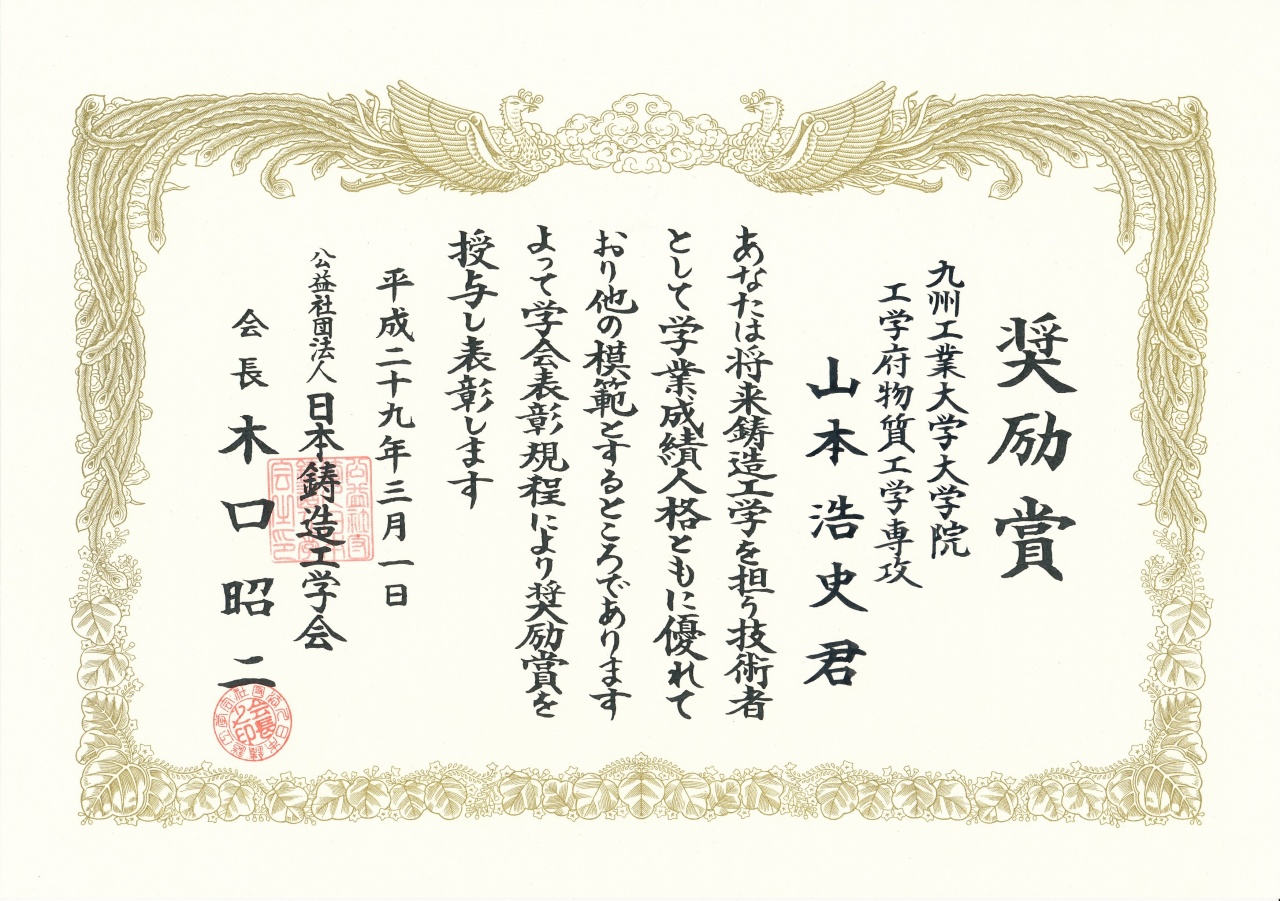 奨励賞
九州工業大学大学院
工学府物質工学専攻
山本浩史君
あなたは将来鋳造工学を担う技術者
として学業成績人格ともに優れて
おり他の模範とするところであります
よって学会表彰規程により奨励賞を
授与し表彰します
平成二十九年三月一日
公益社団法人日本鋳造工学会
会長木口昭二
会長之印